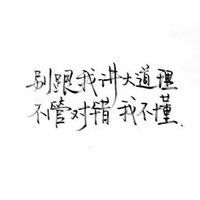 别跟我讲大道理
不管对错 我不懂.